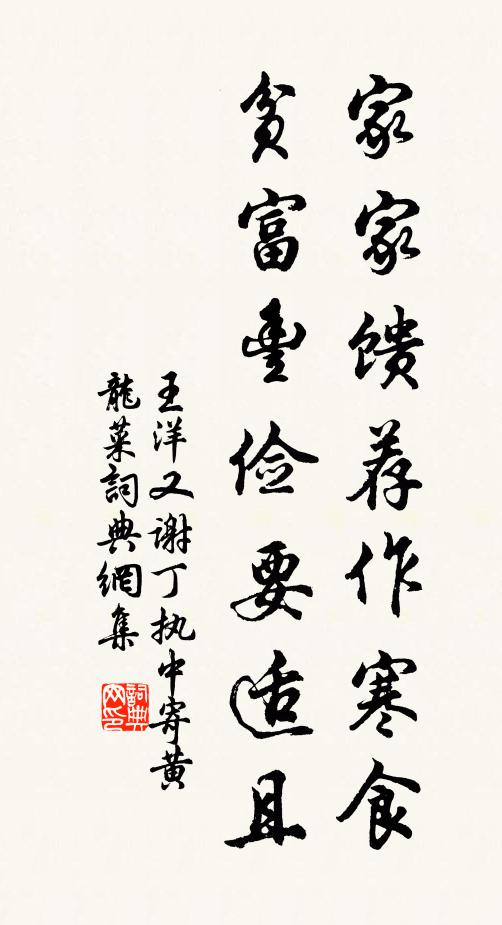 家家馈荐作寒食
贫富丰俭要适且
王洋又谢丁执中寄黄
龍菜詞典網集
詞典网印